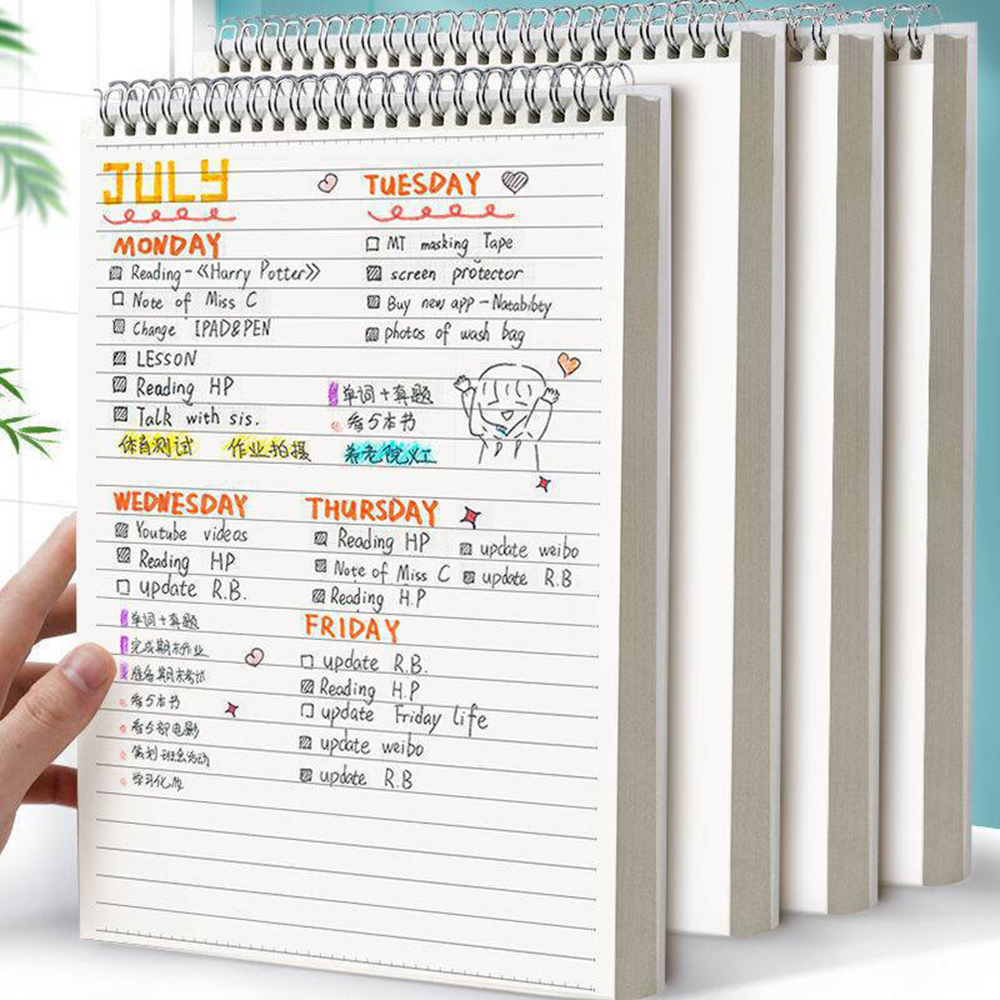 JULY
MONDAY
Reading-《Harry Potter》
Note of Miss C
Change IPAD&PEN
LESSON
Reading HP
Talk with sis.
体育测试 作业拍摄 养老院义工
TUESDAY
MT masking Tape
screen protector
Buy new app - Natabibty
photos of wash bag
单词+真题
看5本书
WEDNESDAY
Youtube videos
Reading HP
update R.B.
单词+真题
完成期末作业
准备期末考试
看5本书
看5部电影
策划班会活动
学习化妆
THURSDAY
Reading HP
Note of Miss C
Reading H.P
update weibo
update R.B
FRIDAY
update R.B.
Reading H.P
update Friday life
update weibo
update R.B